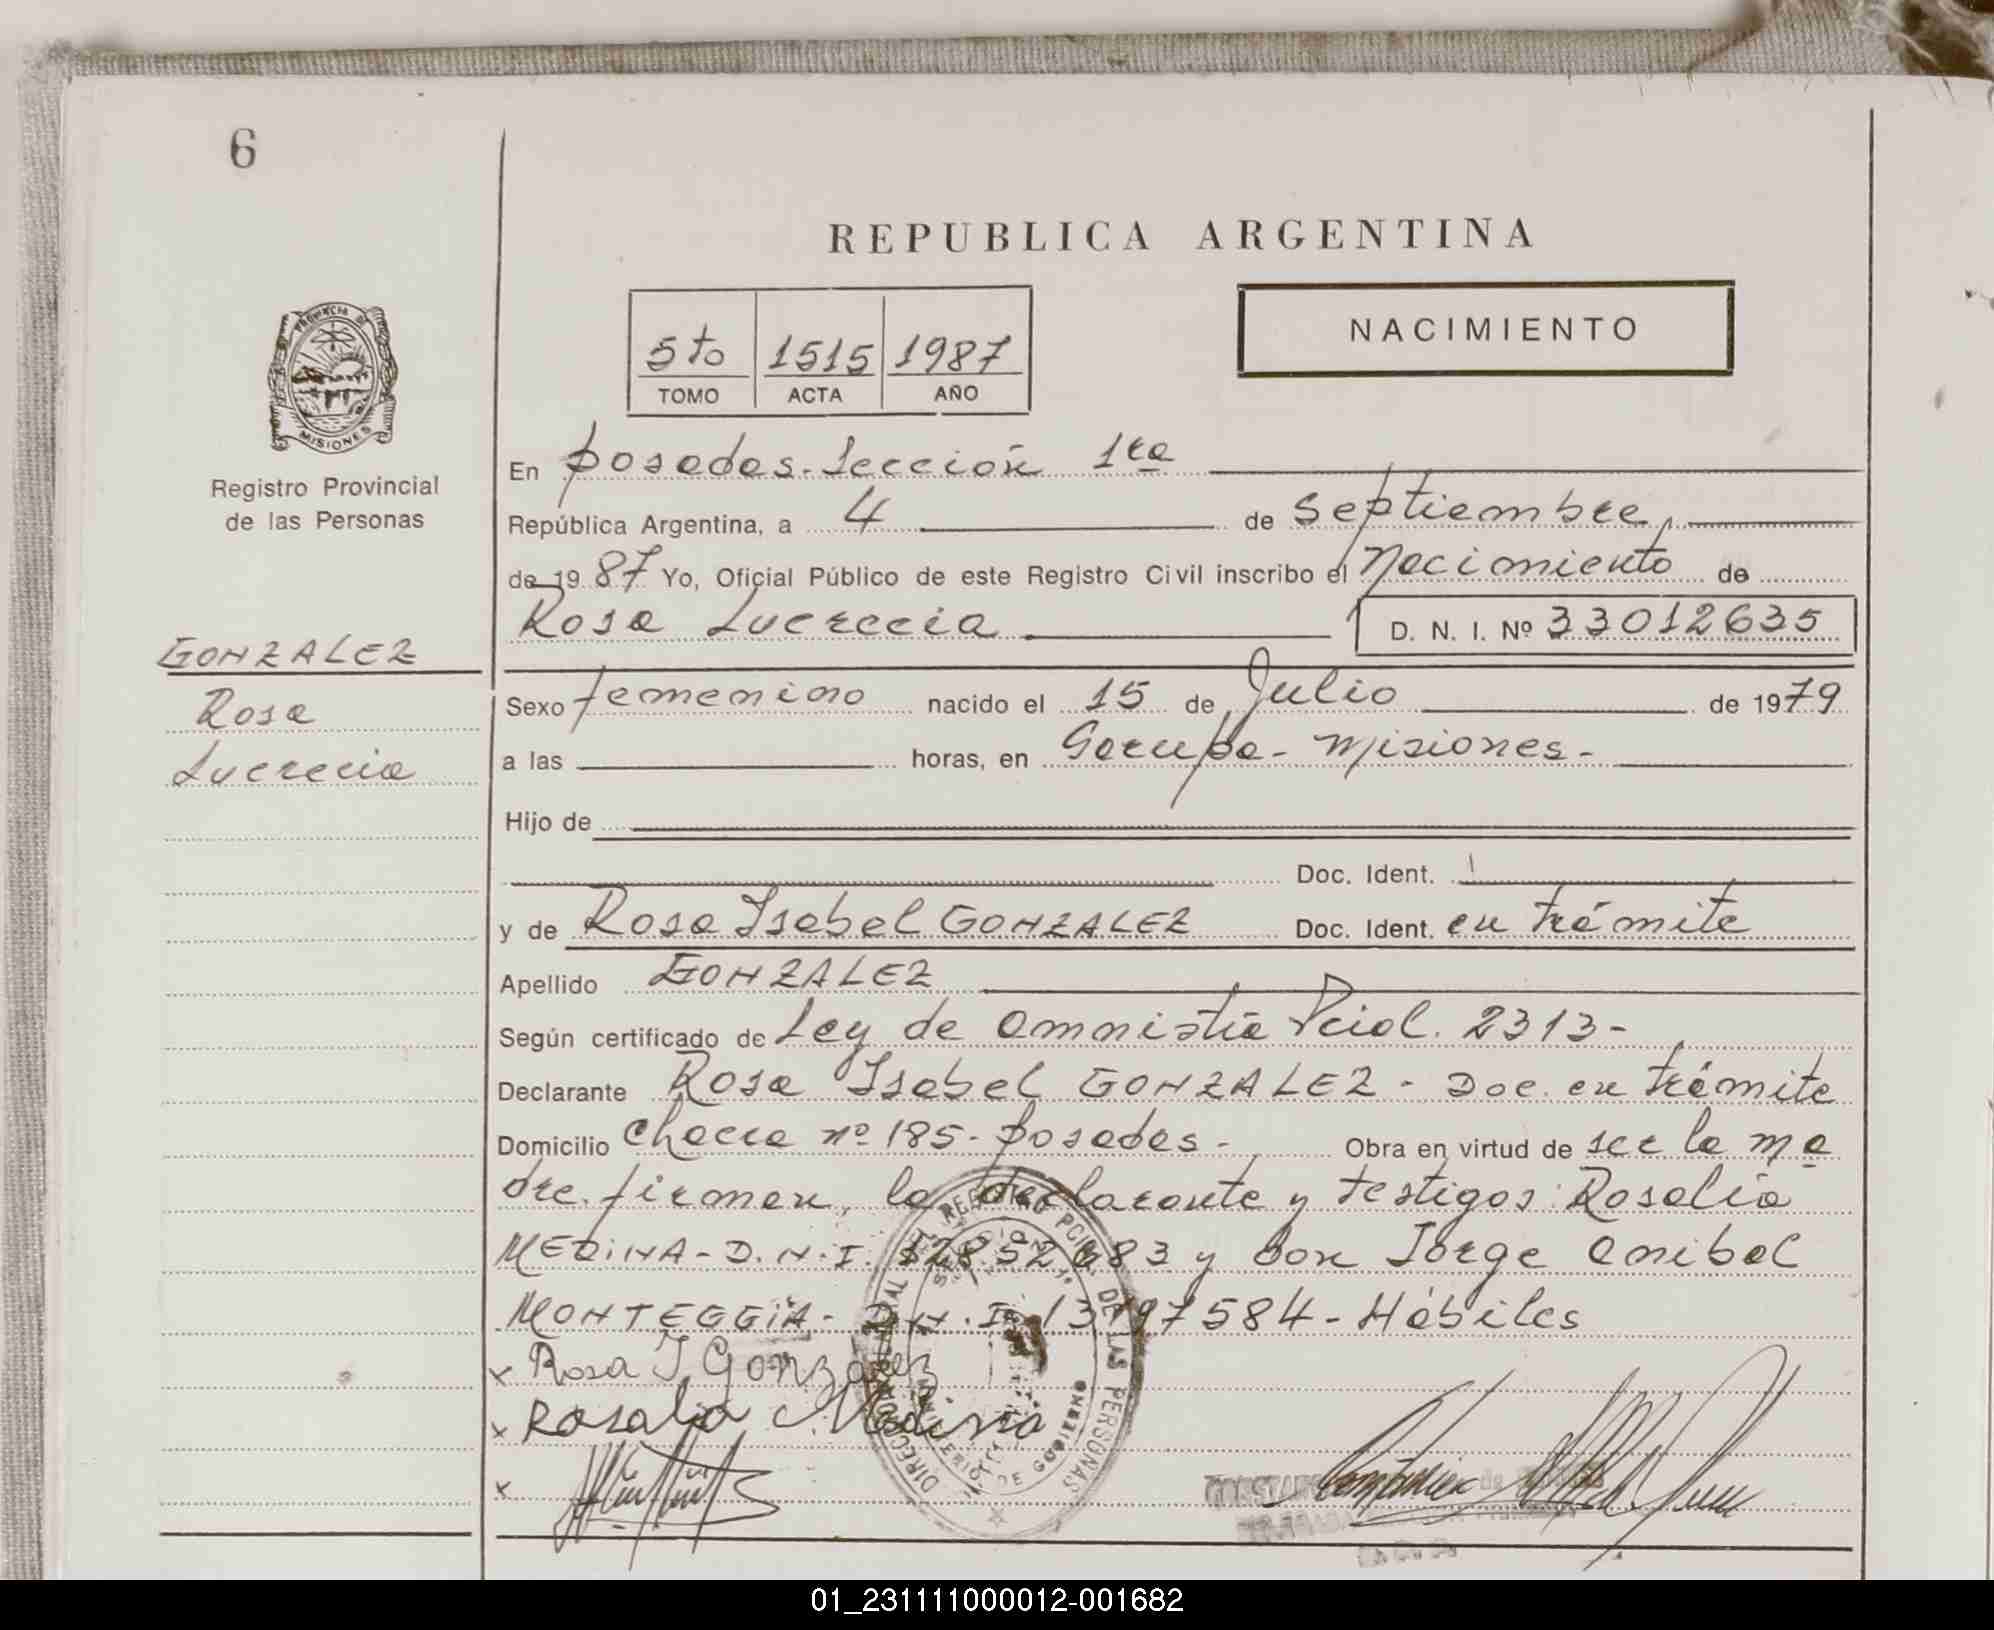 6
REPUBLICA ARGENTINA
5to 1515 1987
TOMO ACTA AÑO
NACIMIENTO
PROVINCIA DE
MISIONES
Registro Provincial
de las Personas
GONZALEZ
Rosa
Lucrecia
En Posadas - Sección 1ra
República Argentina, a 4 de Septiembre,
de 1987 Yo, Oficial Público de este Registro Civil inscribo el Nacimiento de
Rosa Lucrecia D. N. I. Nº 33012635
Sexo femenino nacido el 15 de Julio de 1979
a las horas, en Garupa - Misiones -
Hijo de
Doc. Ident.
y de Rosa Isabel GONZALEZ Doc. Ident. en trámite
Apellido GONZALEZ
Según certificado de Ley de amnistía Pcial. 2313 -
Declarante Rosa Isabel GONZALEZ - Doc. en trámite
Domicilio Chacra nº 185 - Posadas - Obra en virtud de ser la ma
dre. firman, la declarante y testigos: Rosalía
MEDINA - D.N.I. y don Jorge Anibal
MONTEGGIA - D.N.I. 13197584 - Hábiles
x Rosa I Gonzalez
x Rosalia Medina
x
DE LAS PERSONAS
MINISTERIO DE GOBIERNO
01_231111000012-001682